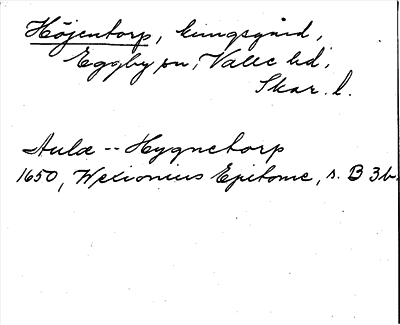 Höjentorp, kungsgård,
Eggby sn, Valle hd,
Skar. l.
Aula -- Hygnetorp
1650, Wexionius Epitome, s. B 3b.